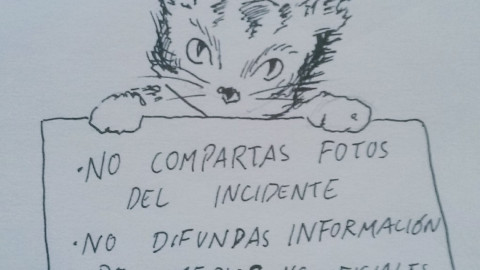 ·NO COMPARTAS FOTOS
DEL INCIDENTE
·NO DIFUNDAS INFORMACIÓN